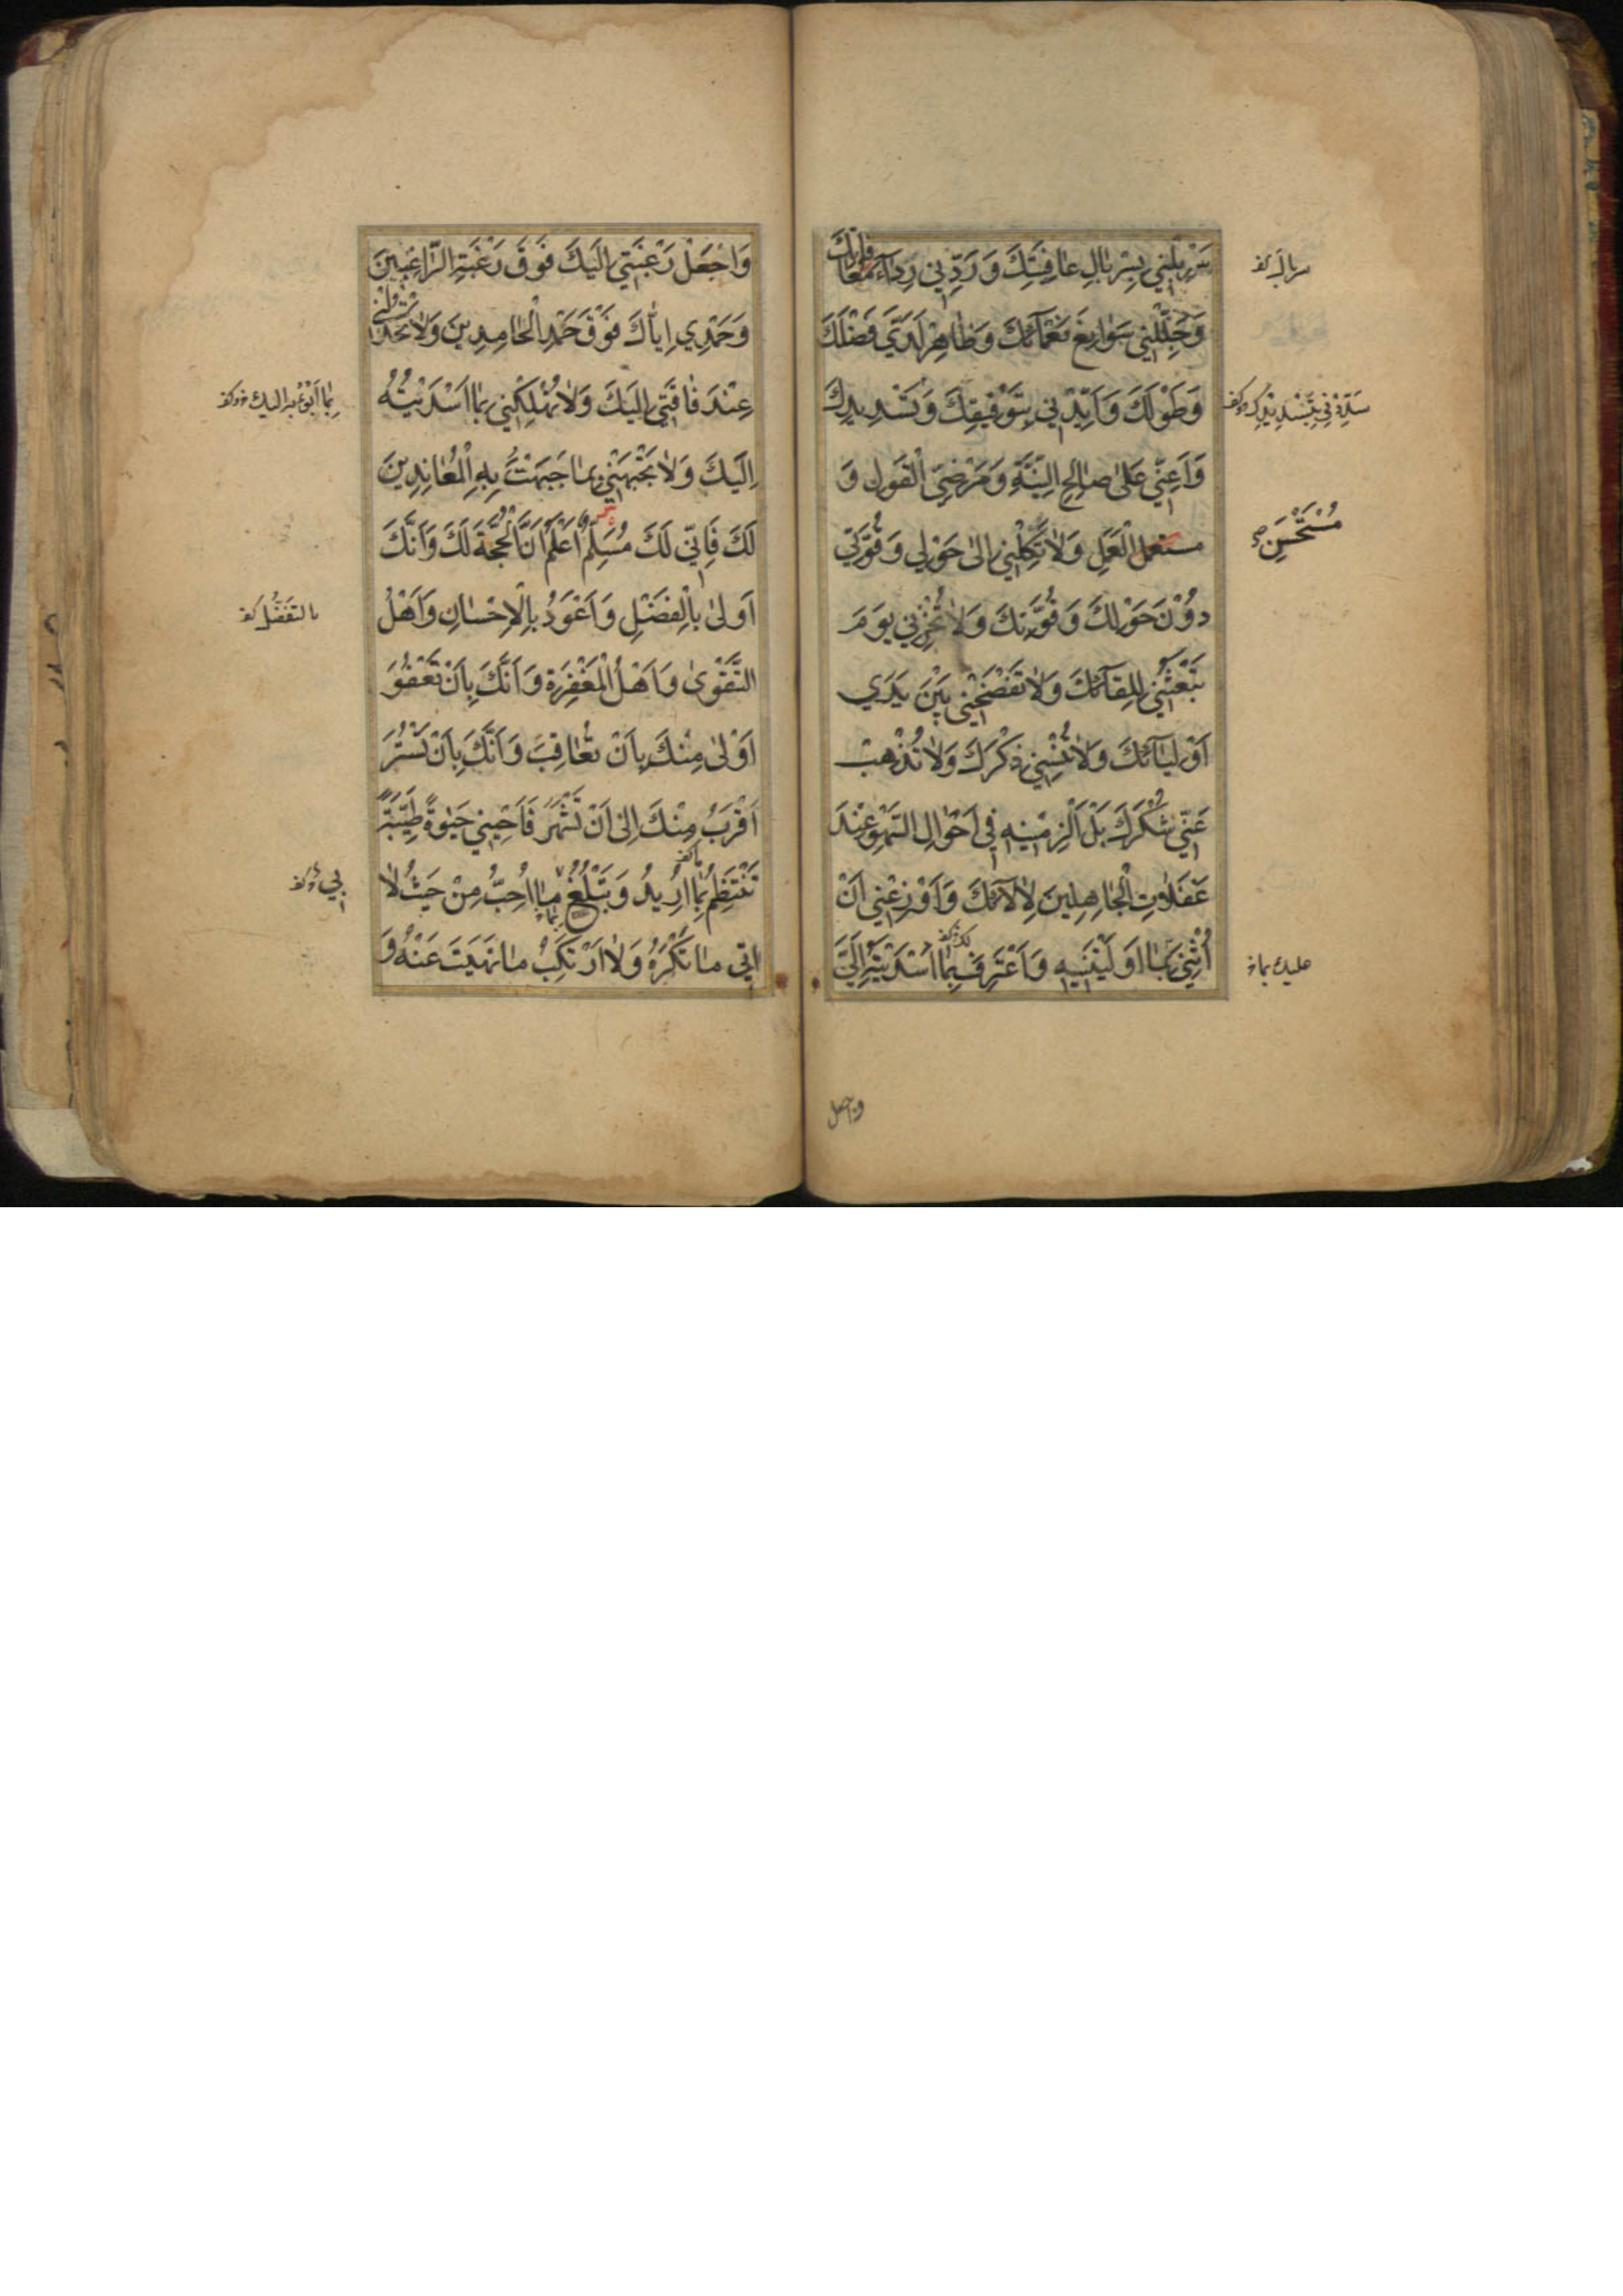 سَرْبِلْنِي بِسِرْبالِ عافِيَتِكَ وَ رَدِّنِي رِداءَ مُعافاتِكَ
وَجَلِّلْنِي سَوابِغَ نَعْمآئِكَ وَظاهِرْ لَدَيَّ فَضْلَكَ
وَطَوْلَكَ وَاَيِّدْنِي بِتَوْفِيقِكَ وَتَسْدِيدِكَ
وَاَعِنِّي عَلىٰ صالِحِ النِّيَّةِ وَمَرْضِيِّ الْقَوْلِ وَ
مستعمل الْعَمَلِ وَلاٰ تَكِلْنِي اِلىٰ حَوْلِي وَقُوَّتِي
دُوْنَ حَوْلِكَ وَقُوَّتِكَ وَلاٰ تُخْزِنِي يَوْمَ
تَبْعَثُنِي لِلِقآئِكَ وَلاٰ تَفْضَحْنِي بَيْنَ يَدَي
اَوْلِيآئِكَ وَلاٰ تُنْسِنِي ذِكْرَكَ وَلاٰ تُذْهِبْ
عَنِّي شُكْرَكَ بَلْ اَلْزِمْنِيهِ فِي اَحْوالِ السَّهْوِ عِنْدَ
غَفَلاٰتِ الْجاهِلِينَ لِاٰلآئِكَ وَاَوْزِعْنِي اَنْ
اُثْنِيَ بِمٰا اَوْلَيْتَنِيهِ وَاَعْتَرِفَ بِمٰا اَسْدَيْتَهُ اِلَيَّ
سربال
مُسْتَحْسَنِ
عليك بما
واجعل
وَاجْعَلْ رَغْبَتِي اِلَيْكَ فَوْقَ رَغْبَةِ الرّٰاغِبِينَ
وَحَمْدِي اِيّٰاكَ فَوْقَ حَمْدِ الْحٰامِدِينَ وَلاٰ تَخْذُلْنِي
عِنْدَ فاقَتِي اِلَيْكَ وَلاٰ تُهْلِكْنِي بِمٰا اَسْدَيْتُهُ
اِلَيْكَ وَلاٰ تَجْبَهْنِي بِمٰا جَبَهْتَ بِهِ الْمُعٰانِدِينَ
لَكَ فَاِنِّي لَكَ مُسَلِّمٌ اَعْلَمُ اَنَّ الْحُجَّةَ لَكَ وَاَنَّكَ
اَوْلىٰ بِالْفَضْلِ وَاَعْوَدُ بِالْاِحْسٰانِ وَاَهْلُ
التَّقْوىٰ وَاَهْلُ الْمَغْفِرَةِ وَاَنَّكَ بِاَنْ تَعْفُوَ
اَوْلىٰ مِنْكَ بِاَنْ تُعٰاقِبَ وَاَنَّكَ بِاَنْ تَسْتُرَ
اَقْرَبُ مِنْكَ اِلىٰ اَنْ تَشْهَرَ فَاَحْيِنِي حَيٰوةً طَيِّبَةً
تَنْتَظِمُ بِمٰا اُرِيدُ وَتَبْلُغُ مٰا اُحِبُّ مِنْ حَيْثُ لاٰ
اٰتِي مٰا تَكْرَهُ وَلاٰ اَرْتَكِبُ مٰا نَهَيْتَ عَنْهُ وَ
بِمٰا اَبُوْءُ بِهِ اليك
بالتَفَضُّل
بي